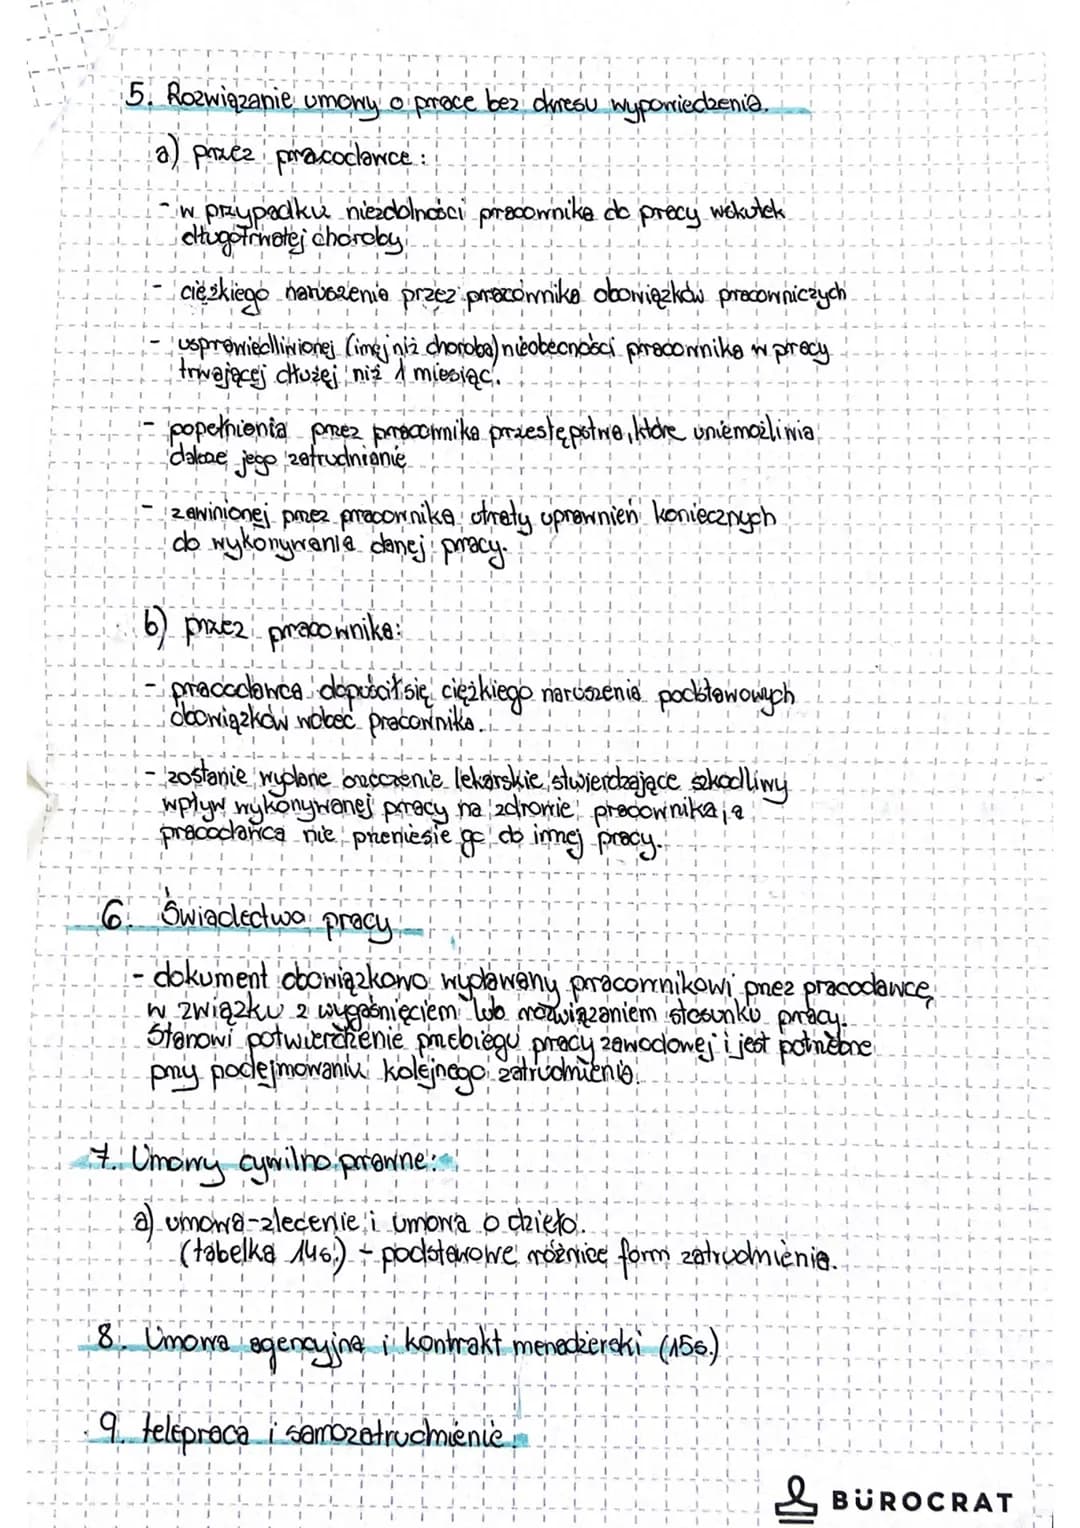 5. Rozwiązanie umowy o pracę bez okresu wypowiedzenia.
a) przez pracodawcę:
- w przypadku niezdolności pracownika do pracy wskutek
długotrwałej choroby
- ciężkiego naruszenia przez pracownika obowiązków pracowniczych
- usprawiedliwionej (innej niż choroba) nieobecności pracownika w pracy
trwającej dłużej niż 1 miesiąc.
- popełnienia przez pracownika przestępstwa, które uniemożliwia
dalsze jego zatrudnianie
- zawinionej przez pracownika utraty uprawnień koniecznych
do wykonywania danej pracy.
b) przez pracownika:
- pracodawca dopuścił się ciężkiego naruszenia podstawowych
obowiązków wobec pracownika.
- zostanie wydane orzeczenie lekarskie stwierdzające szkodliwy
wpływ wykonywanej pracy na zdrowie pracownika, a
pracodawca nie przeniesie go do innej pracy.
6. Świadectwo pracy
- dokument obowiązkowo wydawany pracownikowi przez pracodawcę,
w związku z wygaśnięciem lub rozwiązaniem stosunku pracy.
Stanowi potwierdzenie przebiegu pracy zawodowej i jest potrzebne
przy podejmowaniu kolejnego zatrudnienia.
7. Umowy cywilno prawne:
a) umowa-zlecenie i umowa o dzieło.
(tabelka 14s.) - podstawowe różnice form zatrudnienia.
8. Umowa agencyjna i kontrakt menadżerski (15s.)
9. telepraca i samozatrudnienie.
BÜROCRAT